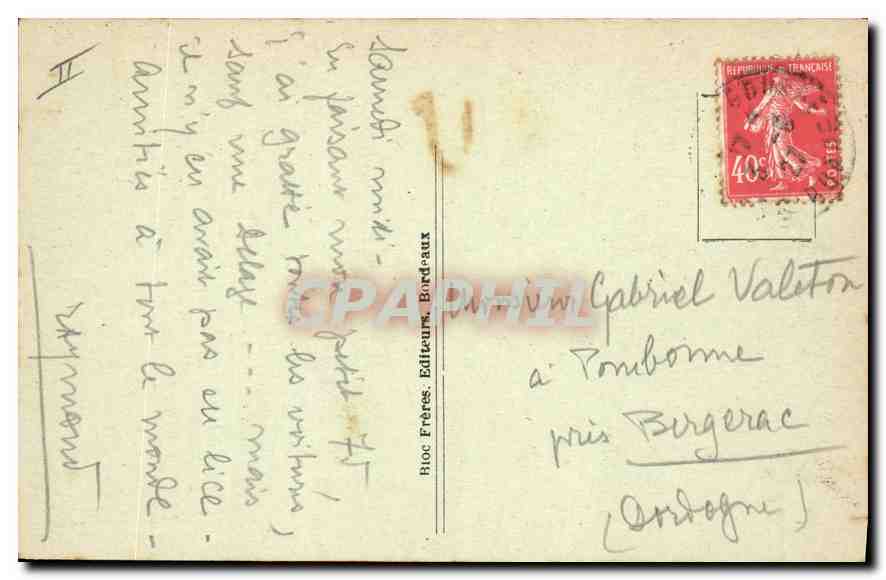 II
Samedi midi -
En faisant mon petit 75
j'ai gratté toutes les voitures,
sauf une Delage - - - mais
il n'y en avait pas en lice -
Amitiés à tout le monde -
Raymond
Bloc Frères, Editeurs, Bordeaux
REPUBLIQUE FRANÇAISE
40c
POSTES
Monsieur Gabriel Valeton
à Pombonne
près Bergerac
(Dordogne)
CPAPHIL